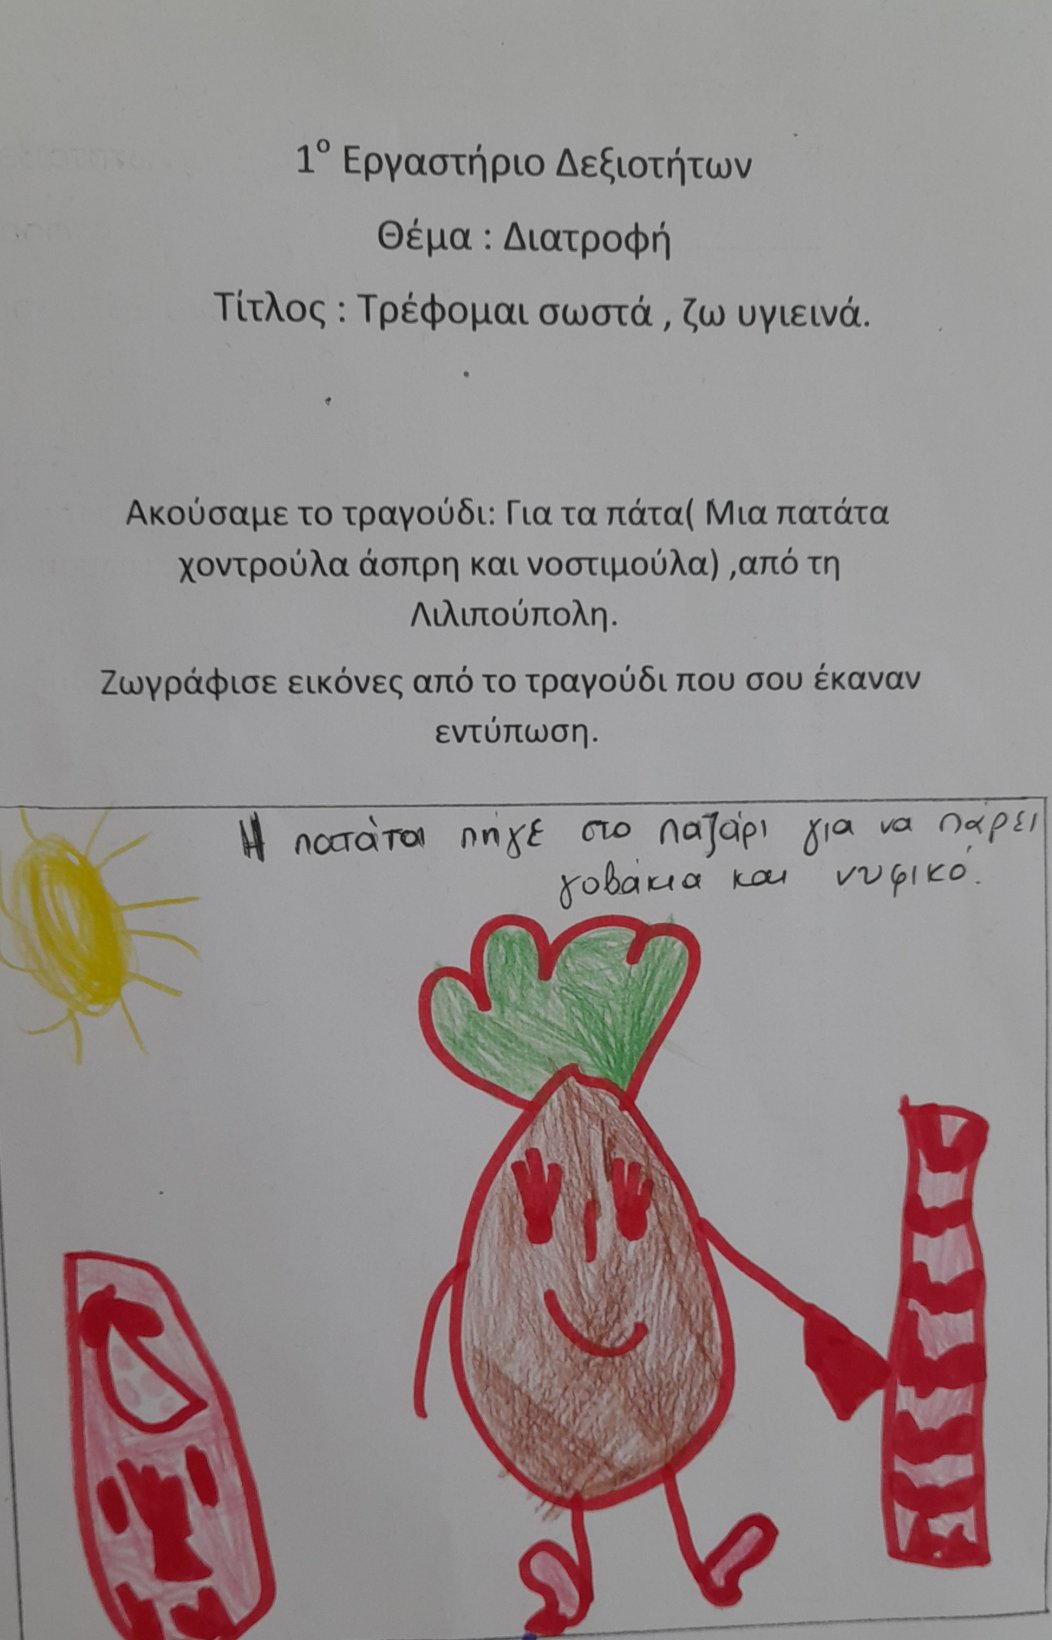 1ο Εργαστήριο Δεξιοτήτων
Θέμα : Διατροφή
Τίτλος : Τρέφομαι σωστά , ζω υγιεινά.
Ακούσαμε το τραγούδι: Για τα πάτα( Μια πατάτα
χοντρούλα άσπρη και νοστιμούλα) ,από τη
Λιλιπούπολη.
Ζωγράφισε εικόνες από το τραγούδι που σου έκαναν
εντύπωση.
Η πατάτα πήγε στο παζάρι για να πάρει
γοβάκια και νυφικό.